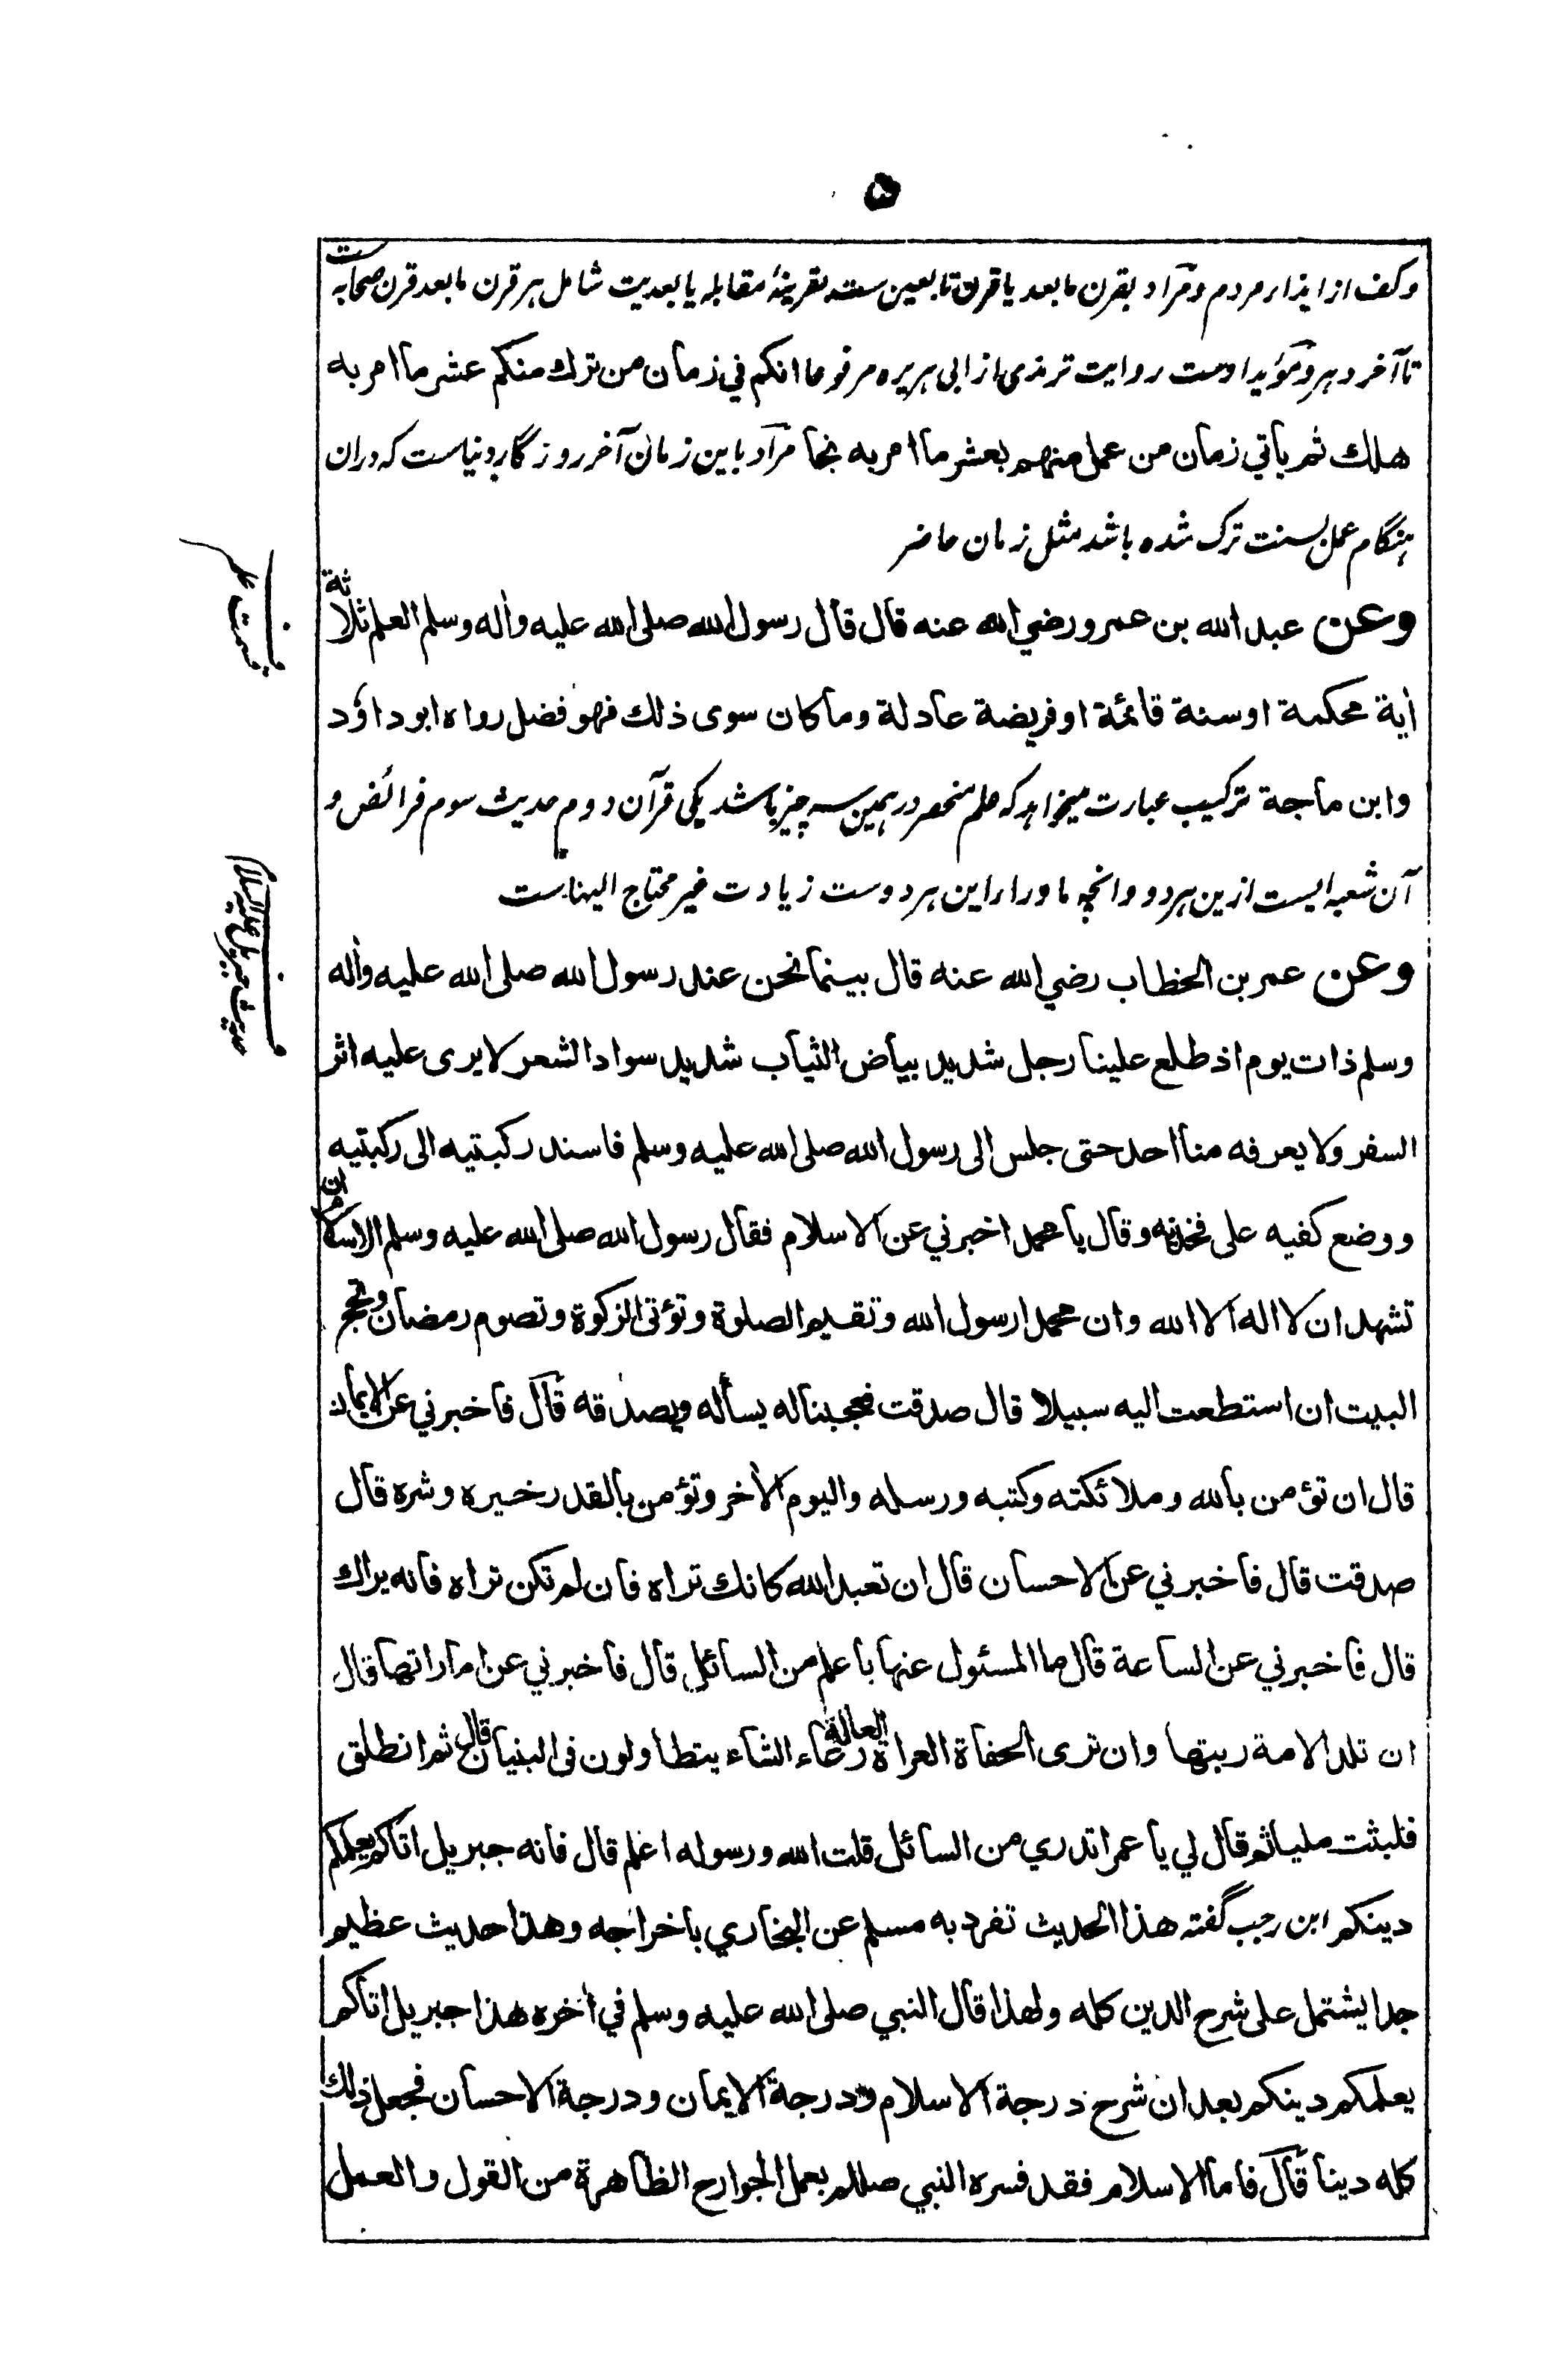 ۵
وکف از ایذاء مردم ومراد بقرن ما بعد یا قرن تابعین ست بقرینهٔ مقابله یا بعدیت شامل هر قرن ما بعد قرن صحابه ست
تا آخر دهر ومؤید اوست روایت ترمذی از ابی هریره مرفوعا انکم في زمان من ترك منکم عشر ما امر به
هلك ثم یأتي زمان من عمل منهم بعشر ما امر به نجا مراد باین زمان آخر روزگار دنیاست که دران
هنگام عمل بسنت ترک شده باشد مثل زمان حاضر
وعن عبد الله بن عمرو رضي الله عنه قال قال رسول الله صلی الله علیه واٰله وسلم العلم ثلاثة
اٰیة محکمة او سنة قائمة او فریضة عادلة وما کان سوی ذلك فهو فضل رواه ابو داؤد
وابن ماجة ترکیب عبارت میخواهد که علم منحصر در همین سه چیز باشد یکی قرآن دوم حدیث سوم فرائض و
آن شعبه ایست ازین هر دو وانچه ماوراء این هر دوست زیادت غیر محتاج الیهاست
وعن عمر بن الخطاب رضي الله عنه قال بینما نحن عند رسول الله صلی الله علیه واٰله
وسلم ذات یوم اذ طلع علینا رجل شدید بیاض الثیاب شدید سواد الشعر لا یری علیه اثر
السفر ولا یعرفه منا احد حتی جلس الی رسول الله صلی الله علیه وسلم فاسند رکبتیه الی رکبتیه
ووضع کفیه علی فخذیه وقال یا محمد اخبرني عن الاسلام فقال رسول الله صلی الله علیه وسلم الاسلام ان
تشهد ان لا اله الا الله وان محمدا رسول الله وتقیم الصلوة وتؤتی الزکوة وتصوم رمضان وتحج
البیت ان استطعت الیه سبیلا قال صدقت فعجبنا له یسأله ویصدقه قال فاخبرني عن الایمان
قال ان تؤمن بالله وملائکته وکتبه ورسله والیوم الاٰخر وتؤمن بالقدر خیره وشره قال
صدقت قال فاخبرني عن الاحسان قال ان تعبد الله کانك تراه فان لم تکن تراه فانه یراك
قال فاخبرني عن الساعة قال ما المسئول عنها باعلم من السائل قال فاخبرني عن اماراتها قال
ان تلد الامة ربتها وان تری الحفاة العراة العالة رعاء الشاء یتطاولون فی البنیان قال ثم انطلق
فلبثت ملیا ثم قال لي یا عمر اتدري من السائل قلت الله ورسوله اعلم قال فانه جبریل اتاکم یعلمکم
دینکم ابن رجب گفته هذا الحدیث تفرد به مسلم عن البخاري باخراجه وهذا حدیث عظیم
جدا یشتمل علی شرح الدین کله ولهذا قال النبي صلی الله علیه وسلم في اٰخره هذا جبریل اتاکم
یعلمکم دینکم بعد ان شرح درجة الاسلام ودرجة الایمان ودرجة الاحسان فجعل ذلك
کله دینا قال فاما الاسلام فقد فسره النبي صللم بعمل الجوارح الظاهرة من القول والعمل
ف قسمت علم
ف حدیث جبریل علیه السلام